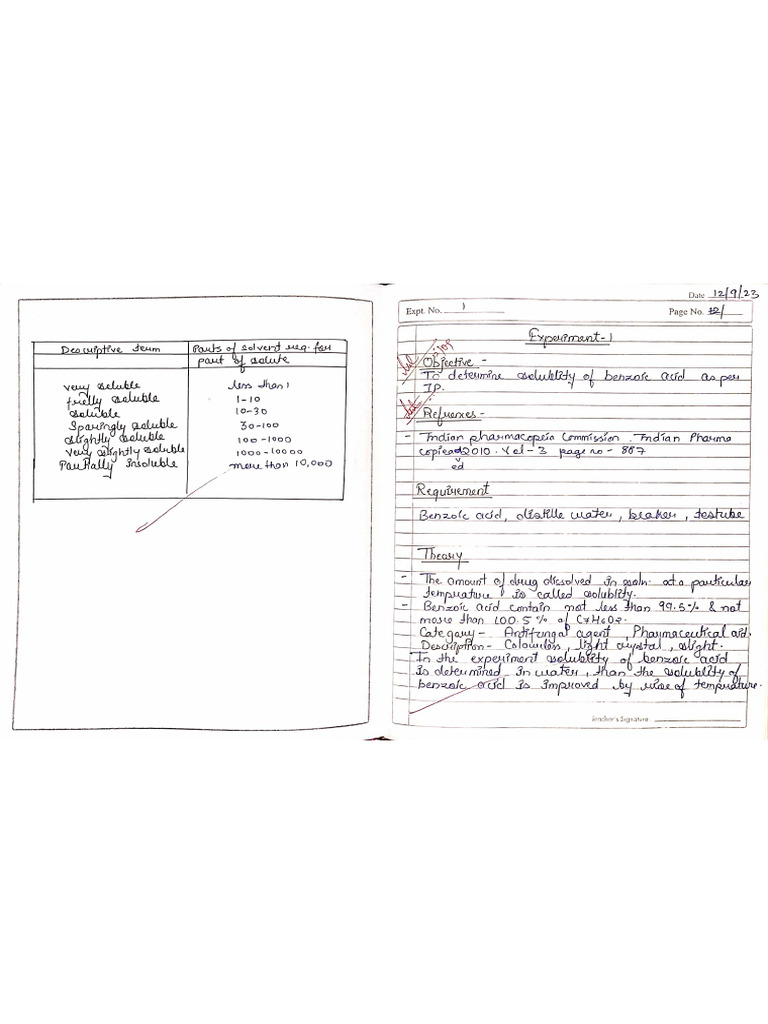 Descriptive term | Parts of solvent req. for
part of solute
very soluble | less than 1
freely soluble | 1-10
soluble | 10-30
Sparingly soluble | 30-100
slightly soluble | 100-1000
very slightly soluble | 1000-10000
Partially insoluble | more than 10,000
Date 12/9/23
Expt. No. 1
Page No. 12/
Experiment-1
Objective -
To determine solublity of benzoic acid as per
IP.
Refrences-
- Indian pharmacopeia Commission. Indian Pharma
copiea 2010. Vol-3 page no- 887
ed
Requirement
Benzoic acid, distille water, beaker, testube
Theory
- The amount of drug dissolved in soln. at a particular
temprature is called solublity.
- Benzoic acid contain not less than 99.5% & not
more than 100.5% of C7H6O2.
Category- Antifungal agent, Pharmaceutical aid.
Description- Colourless, light crystal, slight.
In the experiment solublity of benzoic acid
is determined in water, than the solublity of
benzoic acid is improved by rise of temprature.
Teacher's Signature